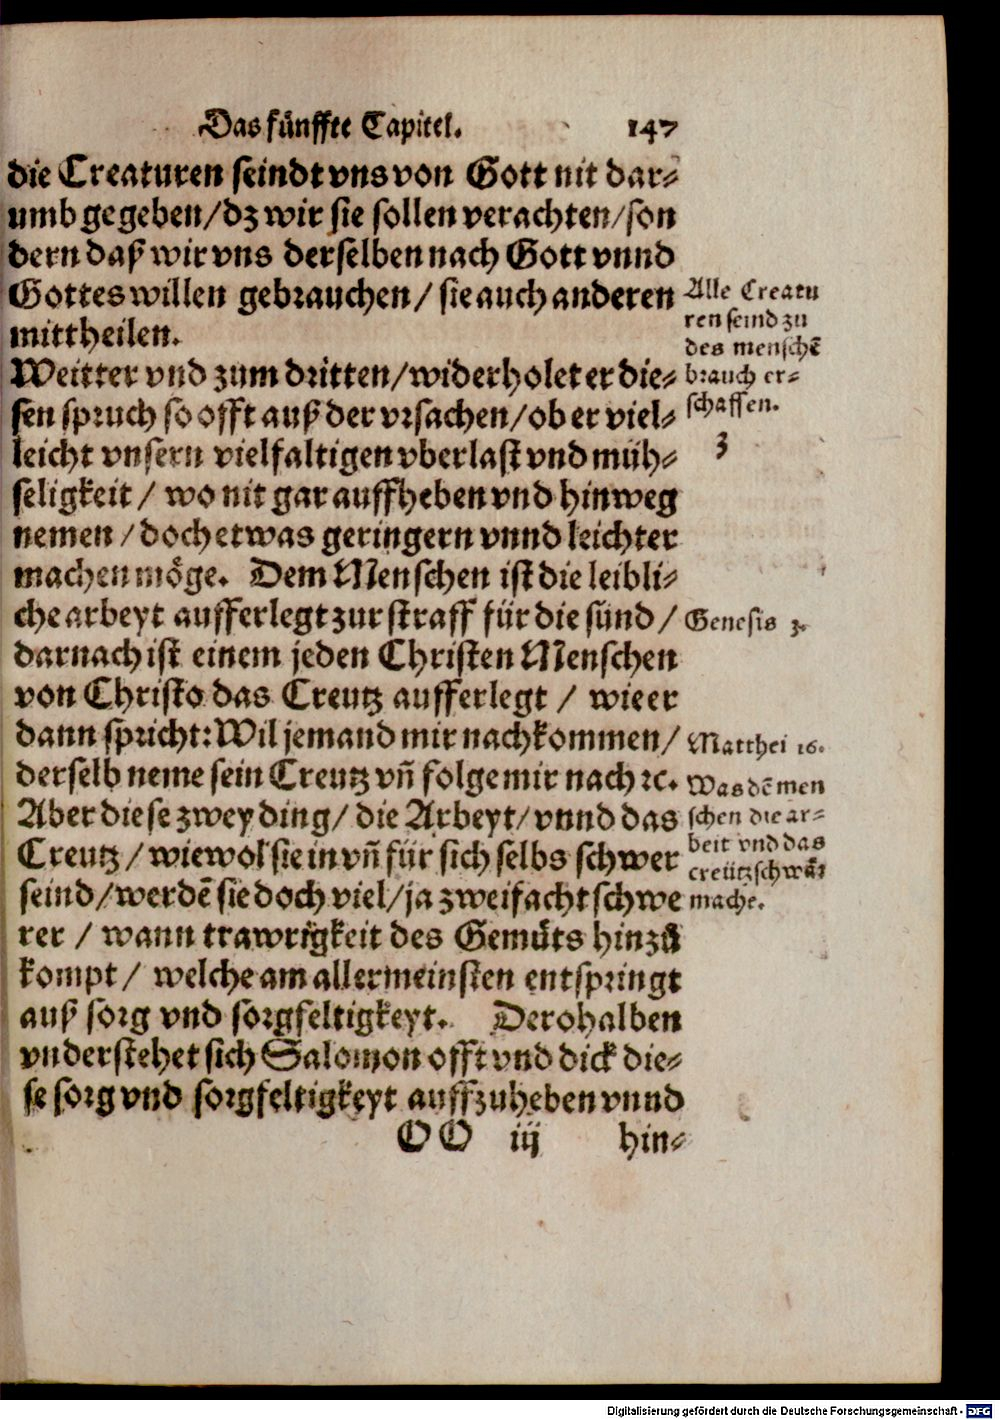 Das fünffte Capitel. 147
die Creaturen seindt vns von Gott nit dar-
umb gegeben/dz wir sie sollen verachten/son
dern daß wir vns derselben nach Gott vnnd
Gottes willen gebrauchen/ sie auch anderen
mittheilen.
Alle Creatu
ren seind zu
des menschē
brauch er-
schaffen.
Weitter vnd zum dritten/widerholet er die-
sen spruch so offt auß der vrsachen/ob er viel-
leicht vnsern vielfaltigen vberlast vnd müh-
3
seligkeit/ wo nit gar auffheben vnd hinweg
nemen/doch etwas geringern vnnd leichter
machen möge. Dem Menschen ist die leibli-
che arbeyt aufferlegt zur straff für die sünd/
Genesis 3.
darnach ist einem jeden Christen Menschen
von Christo das Creutz aufferlegt/ wie er
dann spricht: Wil jemand mir nachkommen/
Matthei 16.
derselb neme sein Creutz vñ folge mir nach ꝛc.
Aber diese zwey ding/ die Arbeyt/ vnnd das
Creutz/ wiewol sie in vñ für sich selbs schwer
seind/werdē sie doch viel/ja zweifacht schwe
Was dē men
schen die ar-
beit vnd das
creütz schwår
mache.
rer/ wann trawrigkeit des Gemůts hinzů
kompt/ welche am allermeinsten entspringt
auß sorg vnd sorgfeltigkeyt. Derohalben
vnderstehet sich Salomon offt vnd dick die-
se sorg vnd sorgfeltigkeyt auffzuheben vnnd
OO iij hin-
Digitalisierung gefördert durch die Deutsche Forschungsgemeinschaft - DFG